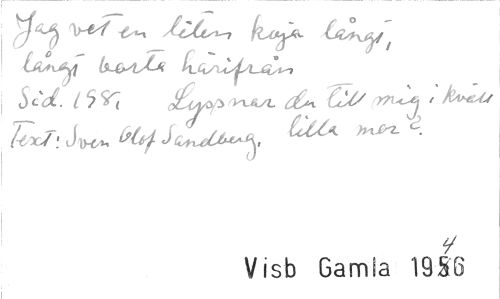 Jag vet en liten koja långt,
långt borta härifrån
Sid. 198, Lyssnar du till mig i kväll
Text: Sven Olof Sandberg. lilla mor?
Visb Gamla 1946